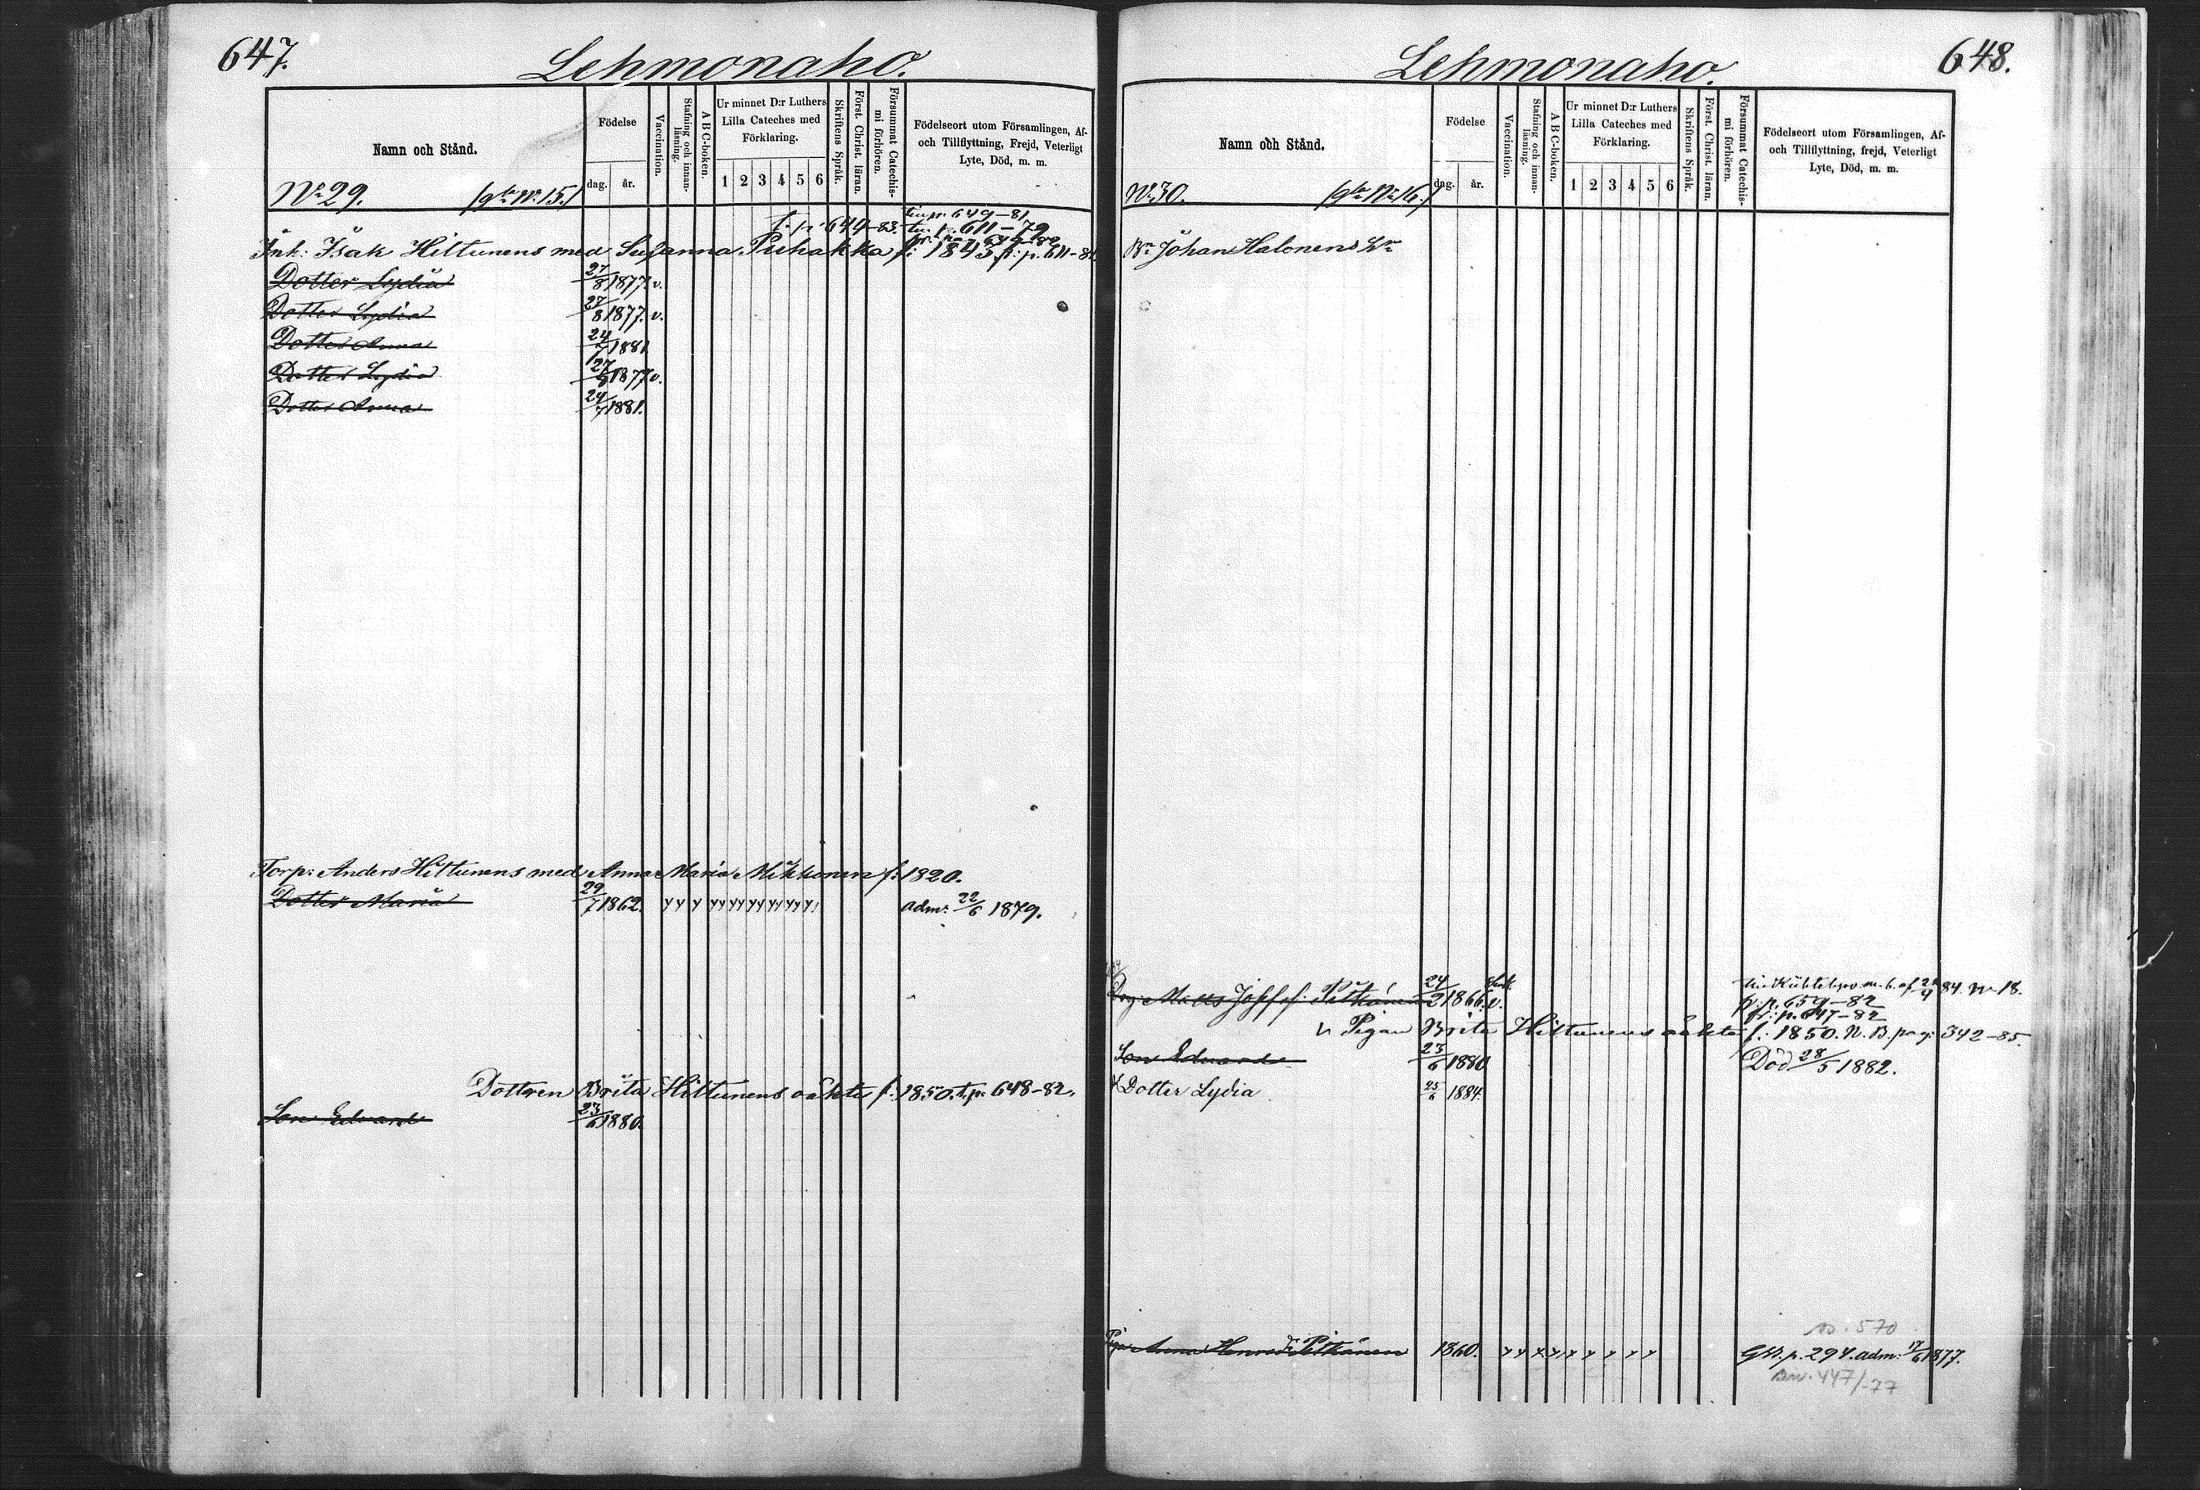 647.
Lehmonaho.
Namn och Stånd.
Födelse
dag. år.
Vaccination.
Stafning och innanläsning.
A B C-boken.
Ur minnet D:r Luthers
Lilla Cateches med
Förklaring.
1 2 3 4 5 6
Skriftens Språk.
Först. Christ. läran.
Försummat Catechismi förhören.
Födelseort utom Församlingen, Af-
och Tillflyttning, Frejd, Veterligt
Lyte, Död, m. m.
No 29.
t. p. 644-83.
p. 649-81
p. 611-79
Inh: Isak Hiltunens med Susanna Puhakka f: 1843 fr: p. 611-81
Dotter Lydia 27/8 1877. v.
Dotter Lydia 27/8 1877. v.
Dotter Anna 24/7 1881
Dotter Lydia 27/8 1877 v.
Dotter Anna 24/7 1881.
Torp: Anders Hiltunens med Anna Maria Mikkonen f: 1820.
Dotter Maria 29/7 1862. adm: 22/6 1879.
Dottren Brita Hiltunens oäkta f: 1850. t. p. 648-82.
Son Edvard 23/6 1880.
648.
Lehmonaho.
Namn och Stånd.
Födelse
dag. år.
Vaccination.
Stafning och innanläsning.
A B C-boken.
Ur minnet D:r Luthers
Lilla Cateches med
Förklaring.
1 2 3 4 5 6
Skriftens Språk.
Först. Christ. läran.
Försummat Catechismi förhören.
Födelseort utom Församlingen, Af-
och Tillflyttning, frejd, Veterligt
Lyte, Död, m. m.
No 30.
Johan Halonens
84. No 18.
Matts Pitkänen 24/2 1866. v. fr: p. 659-82
fr: p. 647-82
Pigan Brita Hiltunens oäkta f: 1850. N. B. pag: 342-85.
Son Edvard 23/6 1880 Död 28/5 1882.
Dotter Lydia 25/6 1884.
570
Anna Pitkänen 1860. p. 294. adm: 17/6 1877.
447/-77